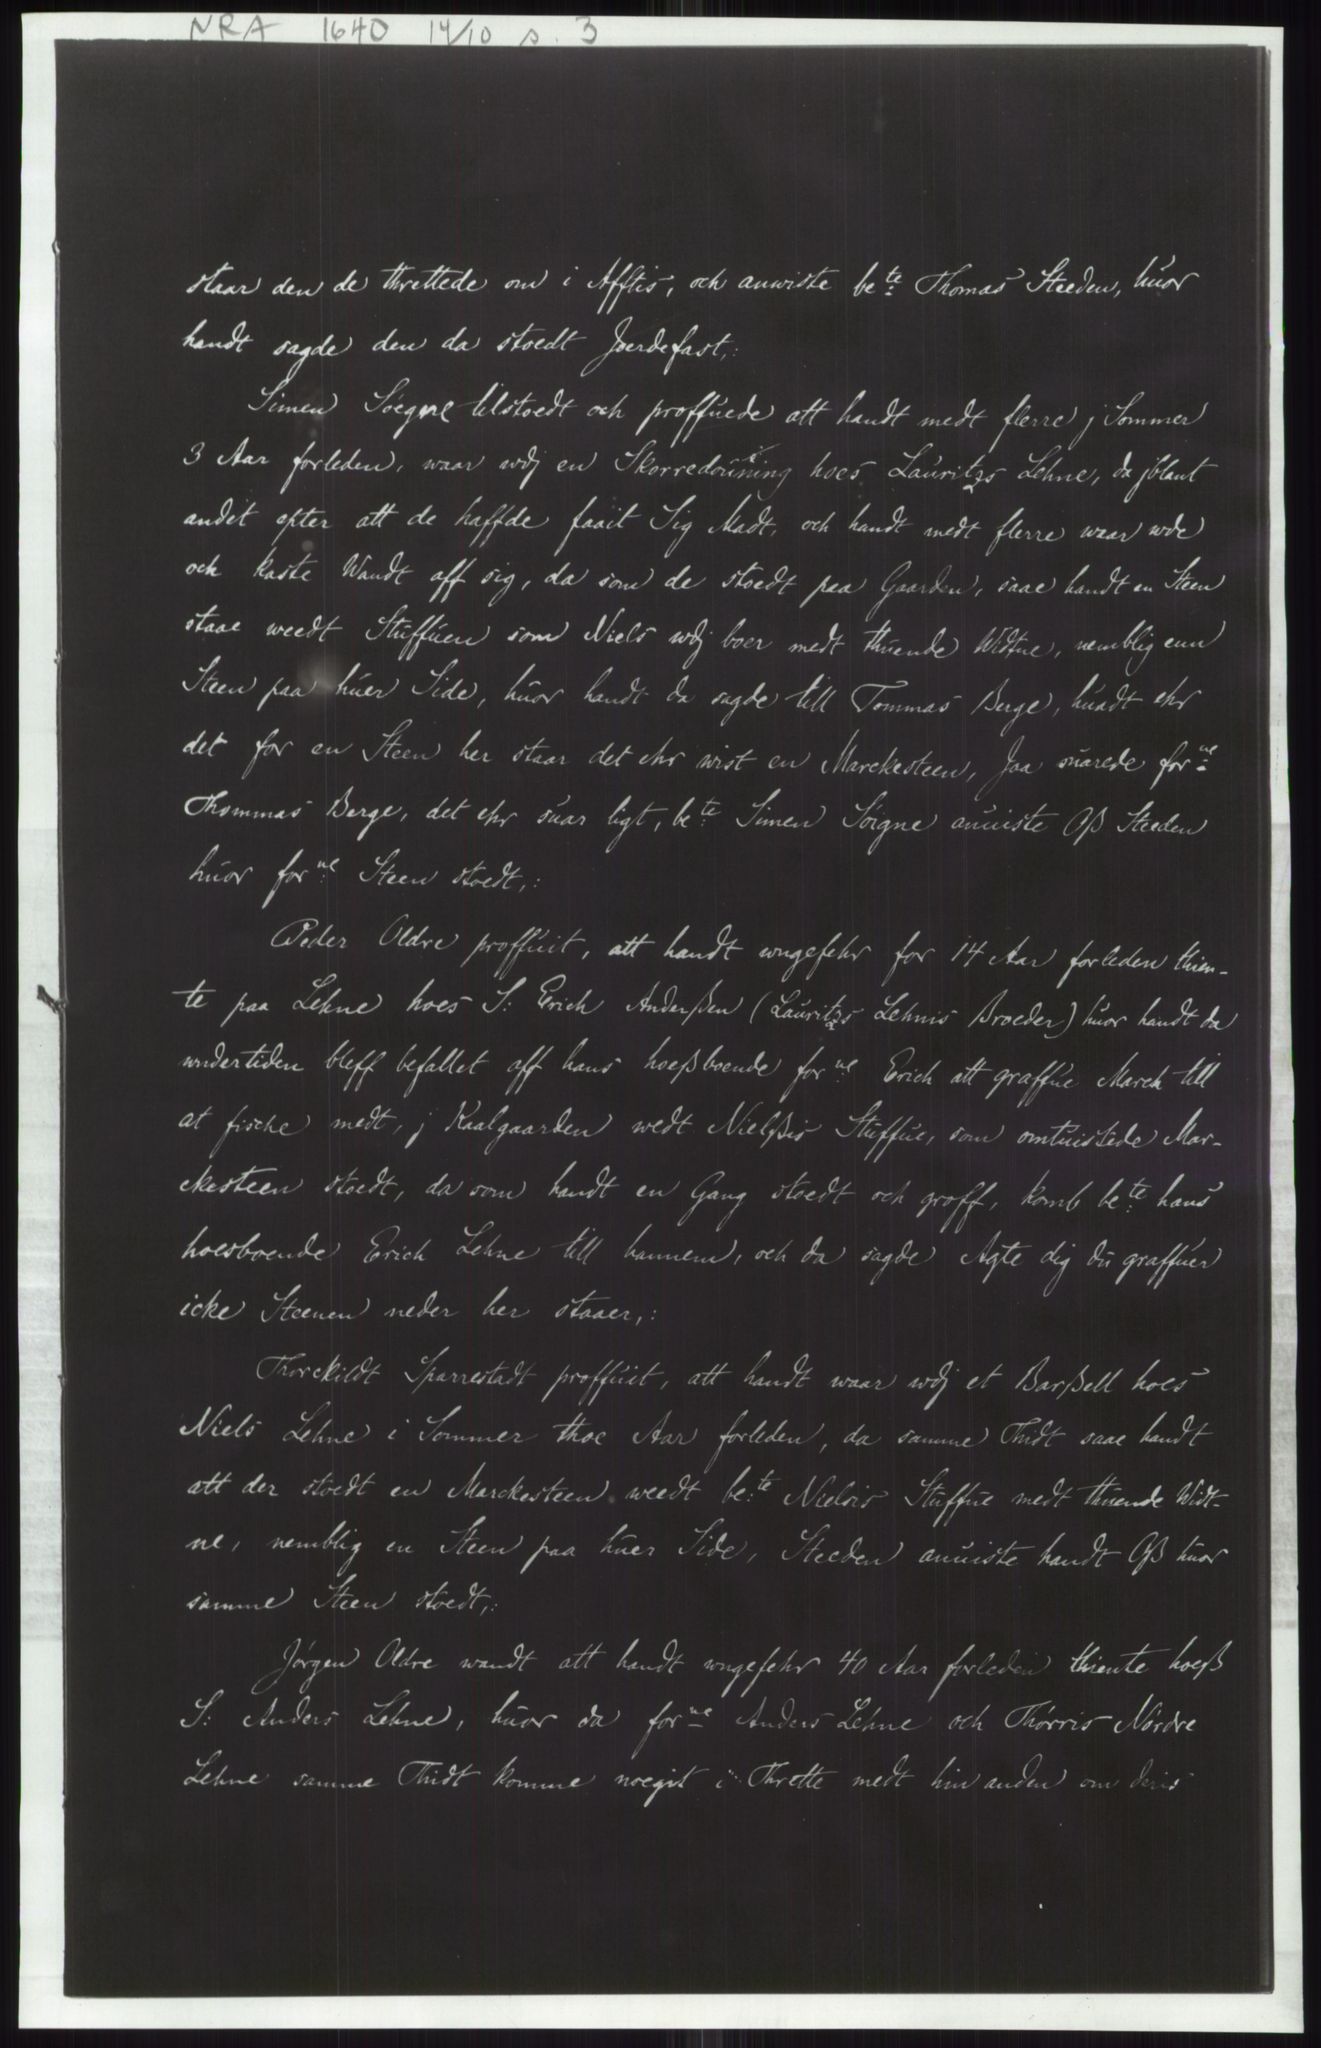 NRA 1640 14/10 s. 3
staar den de threttede om i Afftis, och anwiste be<sup>te</sup>: Thomas Steeden, huor
handt sagde den da stoedt Joerdefast,:
Simen Söegne tilstoedt och proffuede att handt medt flerre j Sommer
3 Aar forleden, waar wdj en Skorredouning hoes Lauritzs Lehne, da jblant
andet epter att de haffde faait Sig Madt, och handt medt flerre waar wde
och kaste Wandt aff sig, da som de stoedt paa Gaarden, saae handt en Steen
staae weedt Stuffuen som Niels wdj boer medt thuende Widtne, nemblig enn
Steen paa huer Side, huor handt da sagde till Tommas Berge, huadt ehr
det for en Steen her staar det ehr wist en Marckesteen, Jaa suarede for<sup>ne</sup>
Thommas Berge, det ehr suar ligt, be<sup>te</sup>: Simen Söigne anuiste Oß Steeden
huor for<sup>ne</sup>: Steen stoedt,:
Peder Oldre proffuit, att handt wngefehr for 14 Aar forleden thien-
te paa Lehne hoes S: Erich Anderßen (Lauritzs Lehnis Broeder) huor handt da
wndertiden bleff befallet aff hans hoeßboende for<sup>ne</sup>: Erich att graffue March till
at fische medt, j Kaalgaarden wedt Nielßis Stuffue, som omtuistede Mar-
ckesteen stoedt, da som handt en Gang stoedt och groff, komb be<sup>te</sup>: hans
hoesboende Erich Lehne till hannem, och da sagde Agte dig du graffuer
icke Steenen neder her staaer,:
Thorckildt Sparrestadt proffuit, att handt waar wdj et Barßell hoes
Niels Lehne i Sommer thoe Aar forleden, da samme Thidt saae handt
att der stoedt en Marckesteen weedt be<sup>te</sup>: Nielsis Stuffue medt thuende Widt-
ne, nemblig en Steen paa huer Side, Steeden anuiste handt Oß huor
samme Steen stoedt,:
Jørgen Oldre wandt att handt wngefehr 40 Aar forleden thiente hoeß
S: Anders Lehne, huor da for<sup>ne</sup> Anders Lehne och Thørris Nørdre
Lehne samme Thidt komme noegit i Thrette medt hin anden om deris